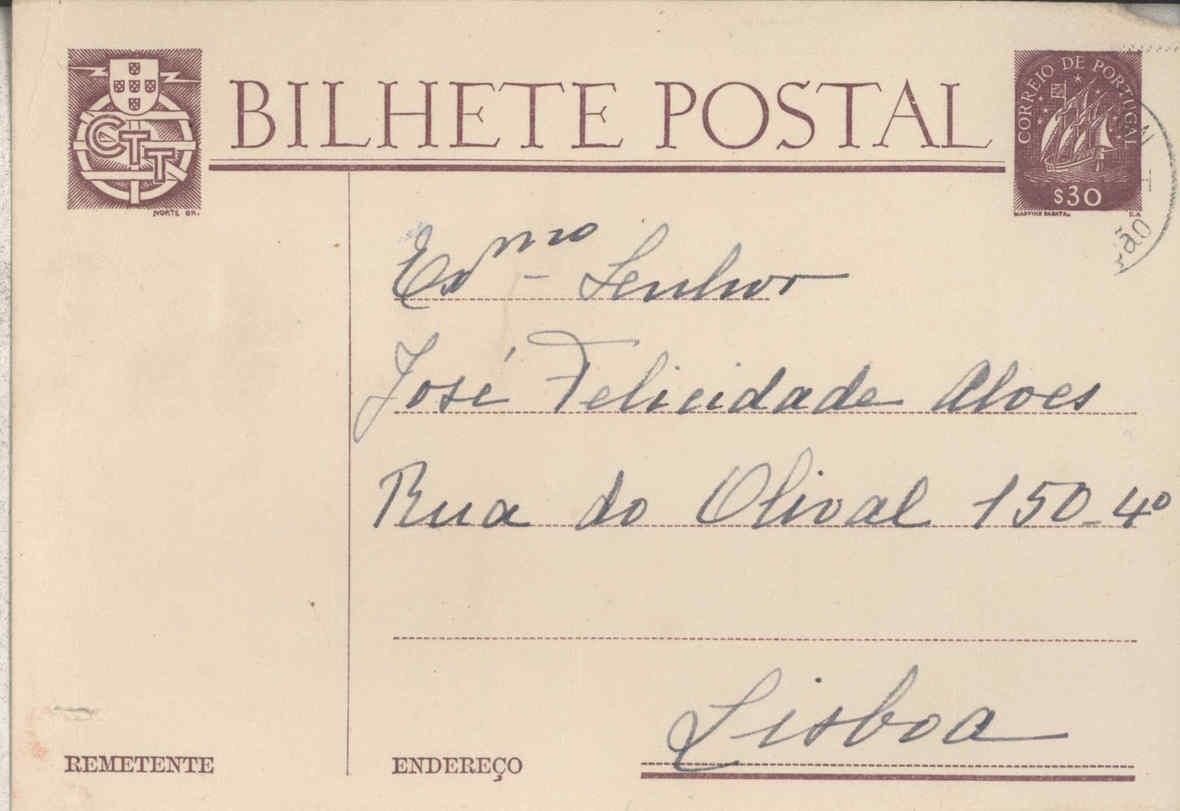 BILHETE POSTAL
CTT
NORTE GR.
CORREIO DE PORTUGAL
$30
Exmo Senhor
José Felicidade Alves
Rua do Olival 150-4º
Lisboa
REMETENTE
ENDEREÇO